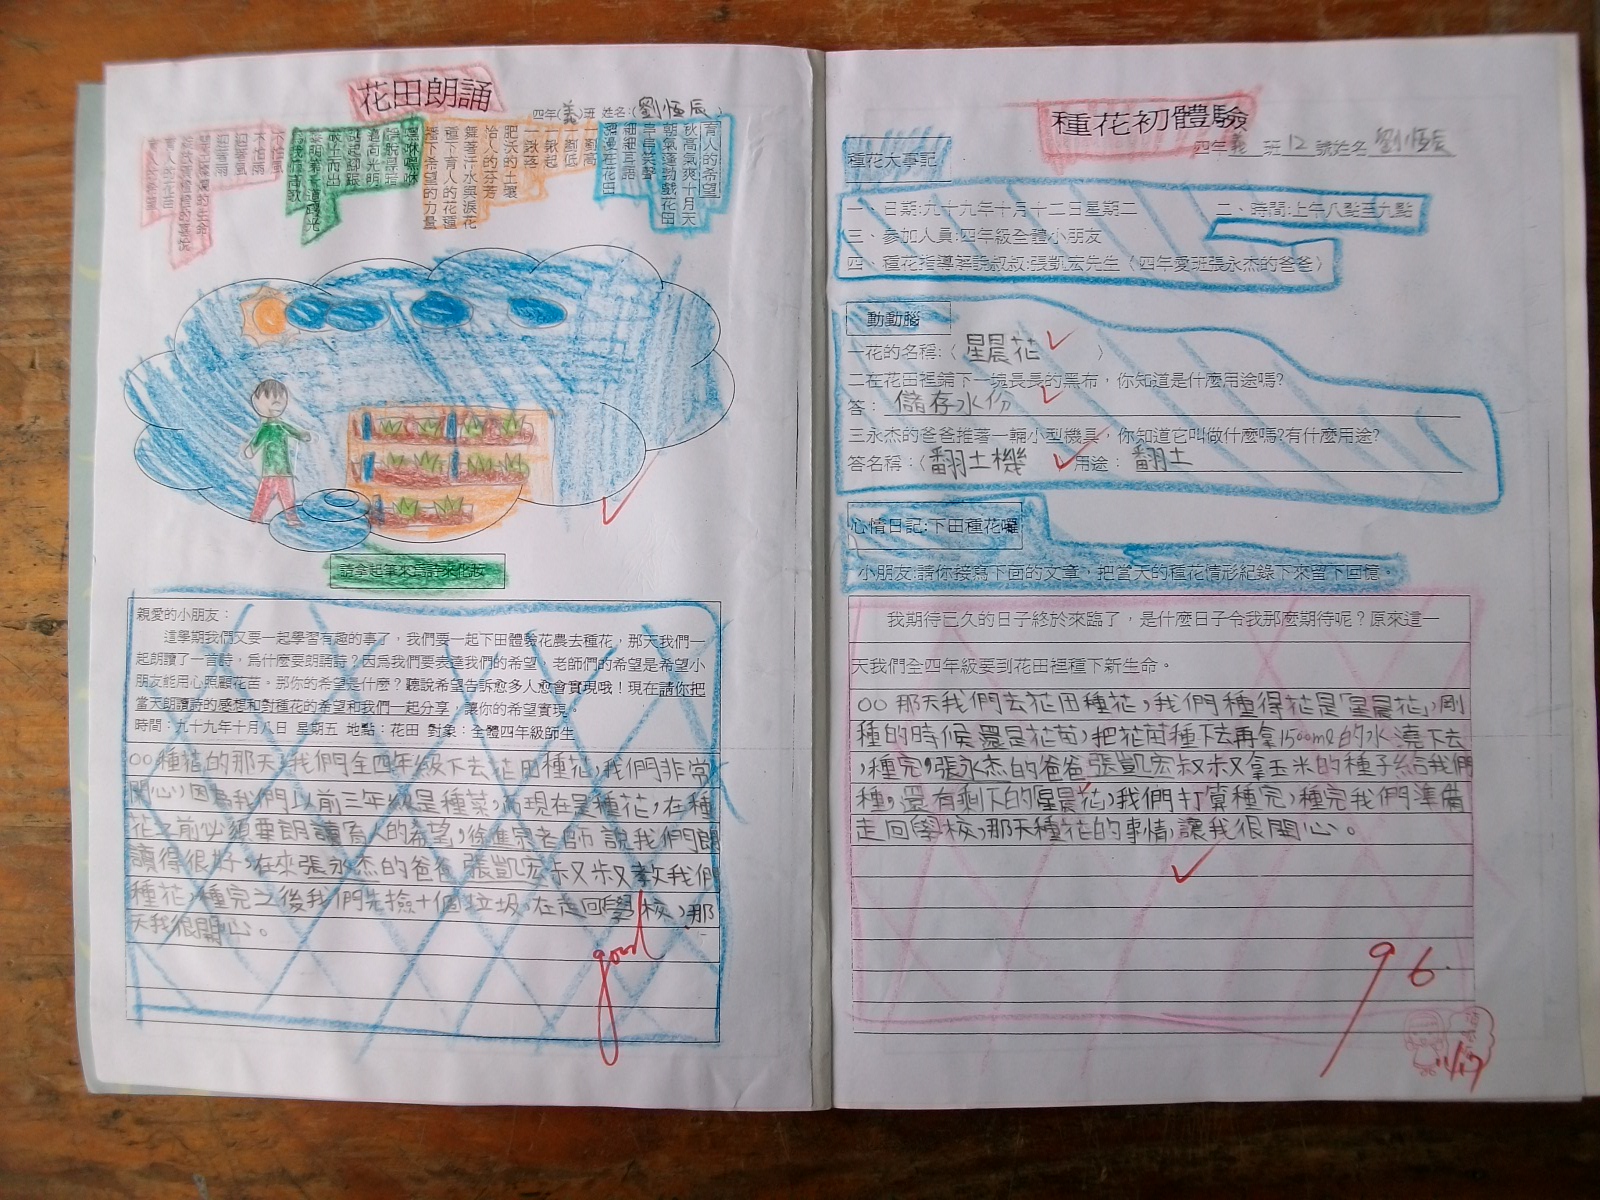 花田朗誦
四年(義)班 姓名:(劉恆辰)
育人的希望
秋高氣爽十月天
朝氣蓬勃戲花田
細細耳語
一劃高
一劃低
一鍬起
一鍬落
肥沃的土壤
怡人的芬芳
舞著汗水與淚花
種下育人的花種
播下希望的力量
迎向光明
破土而出
不怕風
不怕雨
請拿起筆來為詩來化妝
親愛的小朋友：
這學期我們又要一起學習有趣的事了，我們要一起下田體驗花農去種花，那天我們一
起朗讀了一首詩，為什麼要朗誦詩？因為我們要表達我們的希望，老師們的希望是希望小
朋友能用心照顧花苗。那你的希望是什麼？聽說希望告訴愈多人愈會實現哦！現在請你把
當天朗讀詩的感想和對種花的希望和我們一起分享，讓你的希望實現。
時間：九十九年十月八日 星期五 地點：花田 對象：全體四年級師生
○○種花的那天，我們全四年級下去花田種花，我們非常
開心，因為我們以前三年級是種菜，而現在是種花，在種
花之前必須要朗讀育人的希望，徐進宗老師說我們朗
讀得很好，在來張永杰的爸爸 張凱宏叔叔教我們
種花，種完之後我們先撿十個垃圾，在走回學校，那
天我很開心。
good
種花初體驗
四年義班12號姓名劉恆辰
種花大事記
一、日期:九十九年十月十二日星期二 二、時間:上午八點至九點
三、參加人員:四年級全體小朋友
四、種花指導解說叔叔:張凱宏先生（四年愛班張永杰的爸爸）
動動腦
一花的名稱:（星晨花）
二在花田裡鋪下一塊長長的黑布，你知道是什麼用途嗎?
答：儲存水份
三永杰的爸爸推著一輛小型機具，你知道它叫做什麼嗎?有什麼用途?
答名稱：（翻土機 用途：翻土
心情日記:下田種花囉
小朋友:請你接寫下面的文章，把當天的種花情形紀錄下來留下回憶。
我期待已久的日子終於來臨了，是什麼日子令我那麼期待呢？原來這一
天我們全四年級要到花田裡種下新生命。
○○那天我們去花田種花，我們種得花是「星晨花」，剛
種的時候還是花苗，把花苗種下去再拿1500ml的水澆下去
，種完，張永杰的爸爸張凱宏叔叔又拿玉米的種子給我們
種，還有剩下的「星晨花」，我們打算種完，種完我們準備
走回學校，那天種花的事情，讓我很開心。
96.